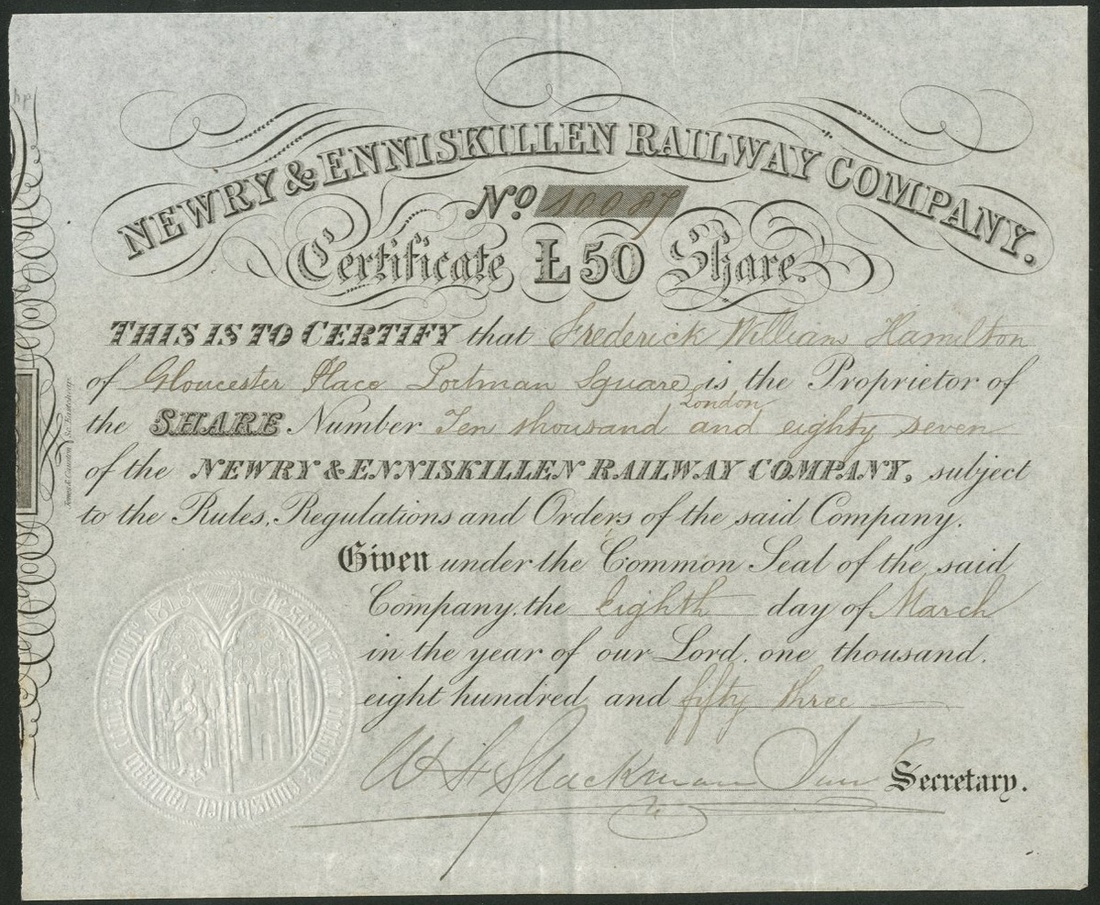 NEWRY & ENNISKILLEN RAILWAY COMPANY.
No. 10087
Certificate £50 Share.
THIS IS TO CERTIFY that Frederick William Hamilton
of Gloucester Place Portman Square is the Proprietor of
London
the SHARE Number Ten thousand and eighty seven
of the NEWRY & ENNISKILLEN RAILWAY COMPANY, subject
to the Rules, Regulations and Orders of the said Company.
Given under the Common Seal of the said
Company, the Eighth day of March
in the year of our Lord, one thousand,
eight hundred and fifty three
Secretary.
The Seal of the Newry &
Enniskillen Railway Company 1845